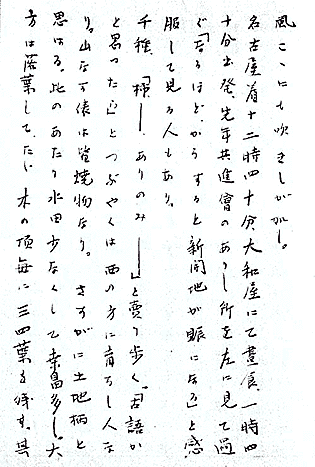 風こゝにも吹きしが
名古屋着十二時四十分、大和屋にて晝食、一時四
十分出發、先年共進會のありし所を左に見て過
ぐ、「なるほど、かうすると新開地が賑になる」と感
服して見る人もあり。
千種、「柿――、ありのみ――」と賣り歩く。「言語が
と思つたら」とつぶやくは西の方に育ちし人な
り。山なす俵は皆焼物なり。さすがに土地柄と
思はる。此のあたり水田少なくして桑畠多し。大
方は落葉して、たゞ木の頂毎に三四葉を殘す。